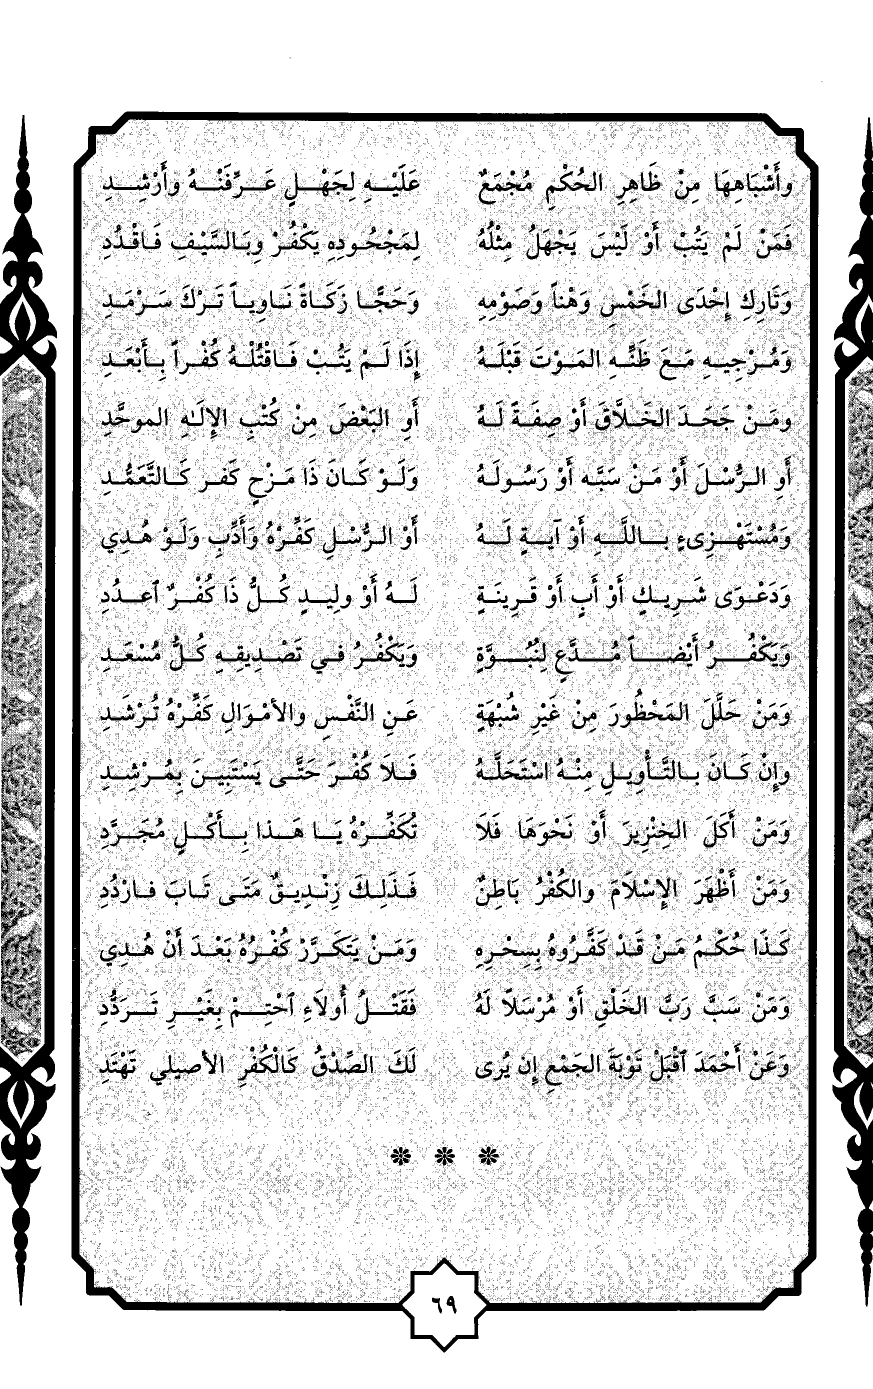 وأَشْبَاهِهَا مِنْ ظَاهِرِ الحُكْمِ مُجْمَعٌ عَلَيْهِ لِجَهْلٍ عَرِّفَنْهُ وأَرْشِدِ
فَمَنْ لَمْ يَتُبْ أَوْ لَيْسَ يَجْهَلُ مِثْلُهُ لِمَجْحُودِهِ يَكْفُرْ وبَالسَّيْفِ فَاقْدُدِ
وَتَارِكِ إِحْدَى الخَمْسِ وَهْناً وَصَوْمِهِ وَحَجًّا زَكَاةً نَاوِياً تَرْكَ سَرْمَدِ
وَمُرْجِيهِ مَعَ ظَنِّهِ المَوْتَ قَبْلَهُ إِذَا لَمْ يَتُبْ فَاقْتُلْهُ كُفْراً بِأَبْعَدِ
ومَنْ جَحَدَ الخَلَّاقَ أَوْ صِفَةً لَهُ أَوِ البَعْضَ مِنْ كُتْبِ الإِلَهِ الموحَّدِ
أَوِ الرُّسْلَ أَوْ مَنْ سَبَّه أَوْ رَسُولَهُ وَلَوْ كَانَ ذَا مَزْحٍ كَفر كَالتَّعَمُّدِ
وَمُسْتَهْزِىءٍ بِاللَّهِ أَوْ آيَةٍ لَهُ أَوْ الرُّسْلِ كَفِّرْهُ وَأَدِّبِ وَلَوْ هُدِي
وَدَعْوَى شَرِيكٍ أَوْ أَبٍ أَوْ قَرِينَةٍ لَهُ أَوْ ولِيدٍ كُلُّ ذَا كُفْرٌ ٱعدُدِ
وَيَكْفُرُ أَيْضاً مُدَّعٍ لِنُبُوَّةٍ وَيَكْفُرُ في تَصْدِيقِهِ كُلُّ مُسْعَدِ
وَمَنْ حَلَّلَ المَحْظُورَ مِنْ غَيْرِ شُبْهَةٍ عَنِ النَّفْسِ والأمْوَالِ كَفِّرْهُ تُرْشَدِ
وإِنْ كَانَ بالتَّأْوِيلِ مِنْهُ اسْتَحَلَّهُ فَلاَ كُفْرَ حَتَّى يَسْتَبِينَ بِمُرْشِدِ
وَمَنْ أَكَلَ الخِنْزِيرَ أَوْ نَحْوَهَا فَلاَ تُكَفِّرْهُ يَا هَذا بِأَكْلٍ مُجَرَّدِ
وَمَنْ أَظْهَرَ الإِسْلاَمَ والكُفْرُ بَاطِنٌ فَذَلِكَ زِنْدِيقٌ مَتَى تَابَ فارْدُدِ
كَذَا حُكْمُ مَنْ قَدْ كَفَّرُوهُ بِسِحْرِهِ وَمَنْ يَتَكَرَّرْ كُفْرُهُ بَعْدَ أَنْ هُدِي
وَمَنْ سَبَّ رَبَّ الخَلْقِ أَوْ مُرْسَلاً لَهُ فَقَتْلُ أُولاَءِ ٱحْتِمْ بِغَيْرِ تَرَدُّدِ
وَعَنْ أَحْمَدَ ٱقْبَلْ تَوْبَةَ الجَمْعِ إِن يُرى لَكَ الصِّدْقُ كَالْكُفْرِ الأصيلي تَهْتَدِ
* * *
٦٩